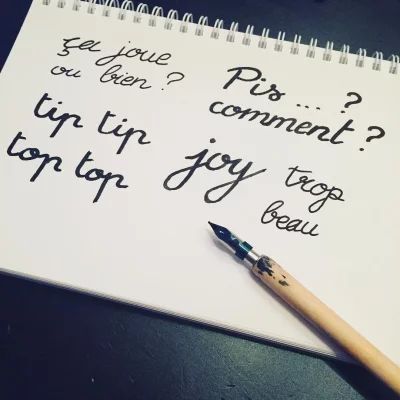 ça joue
ou bien ?
Pis ... ?
comment ?
tip tip
top top
joy
trop
beau